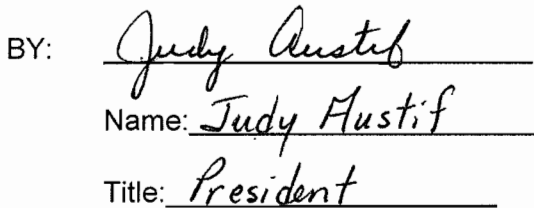 BY: Judy Austif
Name: Judy Austif
Title: President